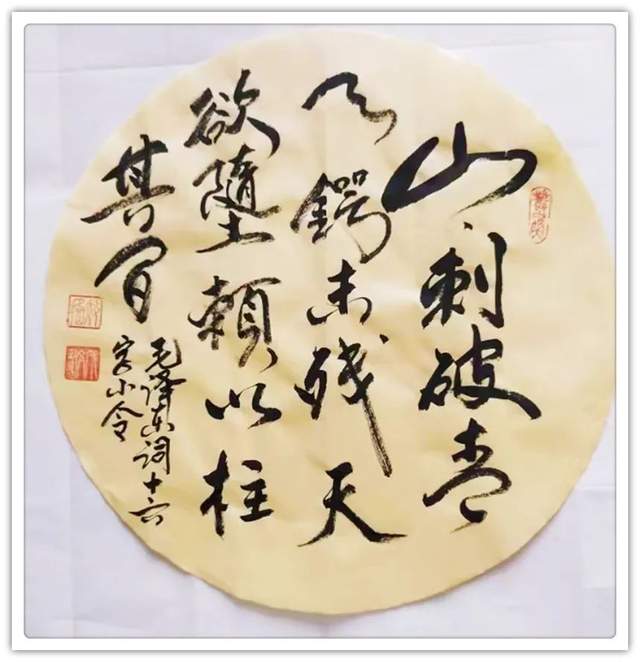 山刺破青
天鍔未残天
欲墮賴以柱
其间
毛泽东词十六
字小令